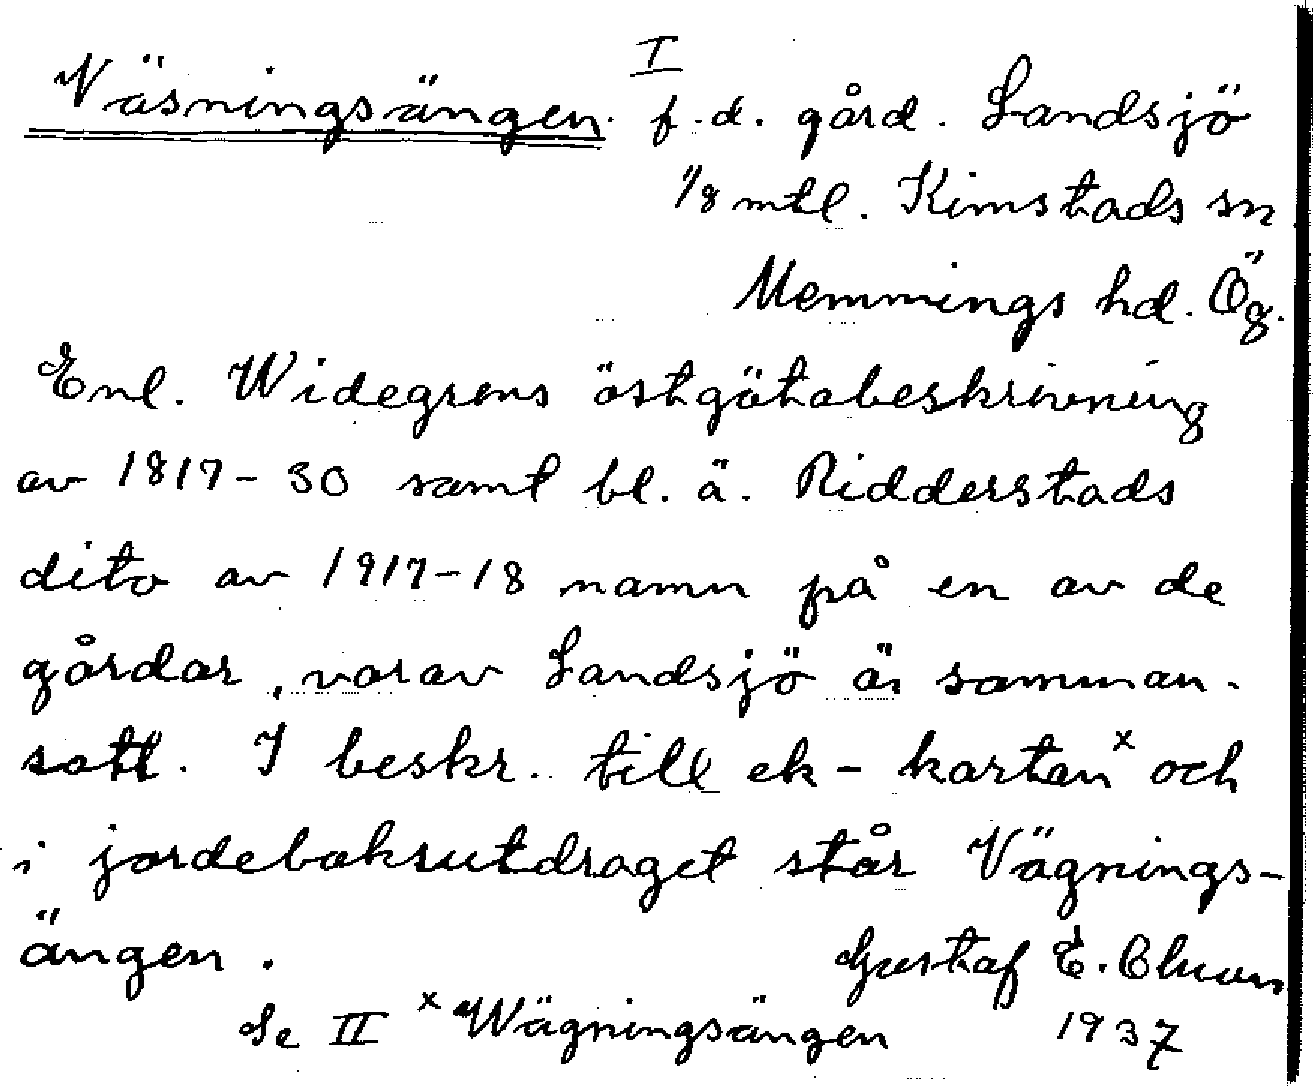 I
Väsningsängen. f.d. gård. Landsjö
1/8 mtl. Kimstads sn
Memmings hd. Ög.
Enl. Widegrens östgötabeskrivning
av 1817-30 samt bl. ä. Ridderstads
dito av 1917-18 namn på en av de
gårdar, varav Landsjö är samman-
satt. I beskr. till ek-kartan x och
i jordeboksutdraget står Vägnings-
ängen. Gustaf E.
Se II x Wägningsängen 1937